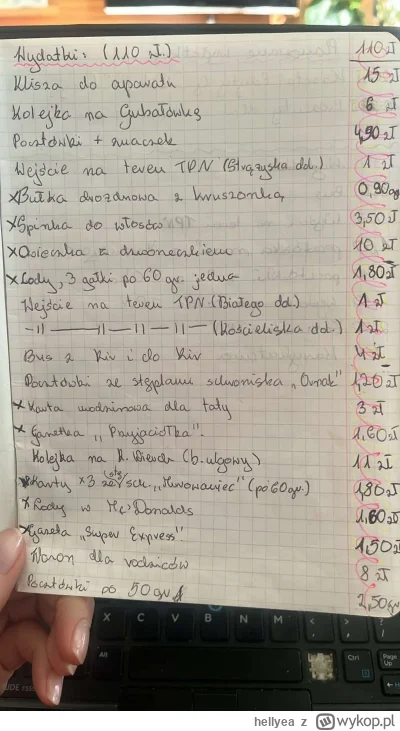 Wydatki: (110 zł.) 110 zł
Klisza do aparatu 15 zł
Kolejka na Gubałówkę 6 zł
Pocztówki + znaczek 4,90 zł
Wejście na teren TPN (Strążyska dol.) 1 zł
x Bułka drożdżowa z kruszonką 0,90 gr
x Spinka do włosów 3,50 zł
x Owieczka z dzwoneczkiem 10 zł
x Lody, 3 gałki po 60 gr. jedna 1,80 zł
Wejście na teren TPN (Białego dol.) 1 zł
-11- -11- -11- -11- (Kościeliska dol.) 1 zł
Bus z Kir i do Kir 4 zł
Pocztówki ze stęplami schroniska „Ornak" 1,20 zł
x Karta urodzinowa dla taty 3 zł
x Gazetka „Przyjaciółka". 1,60 zł
Kolejka na K. Wierch (b. ulgowy) 11 zł
x Karty x3 szt. (po 60 gr.) 1,80 zł
x Lody w McDonalds 1,60 zł
x Gazeta „Super Express". 1,50 zł
dla rodziców 8 zł
Pocztówki po 50 gr 2,50 gr
X C V B N M
Alt Ctrl Page Up
hellyea z wykop.pl